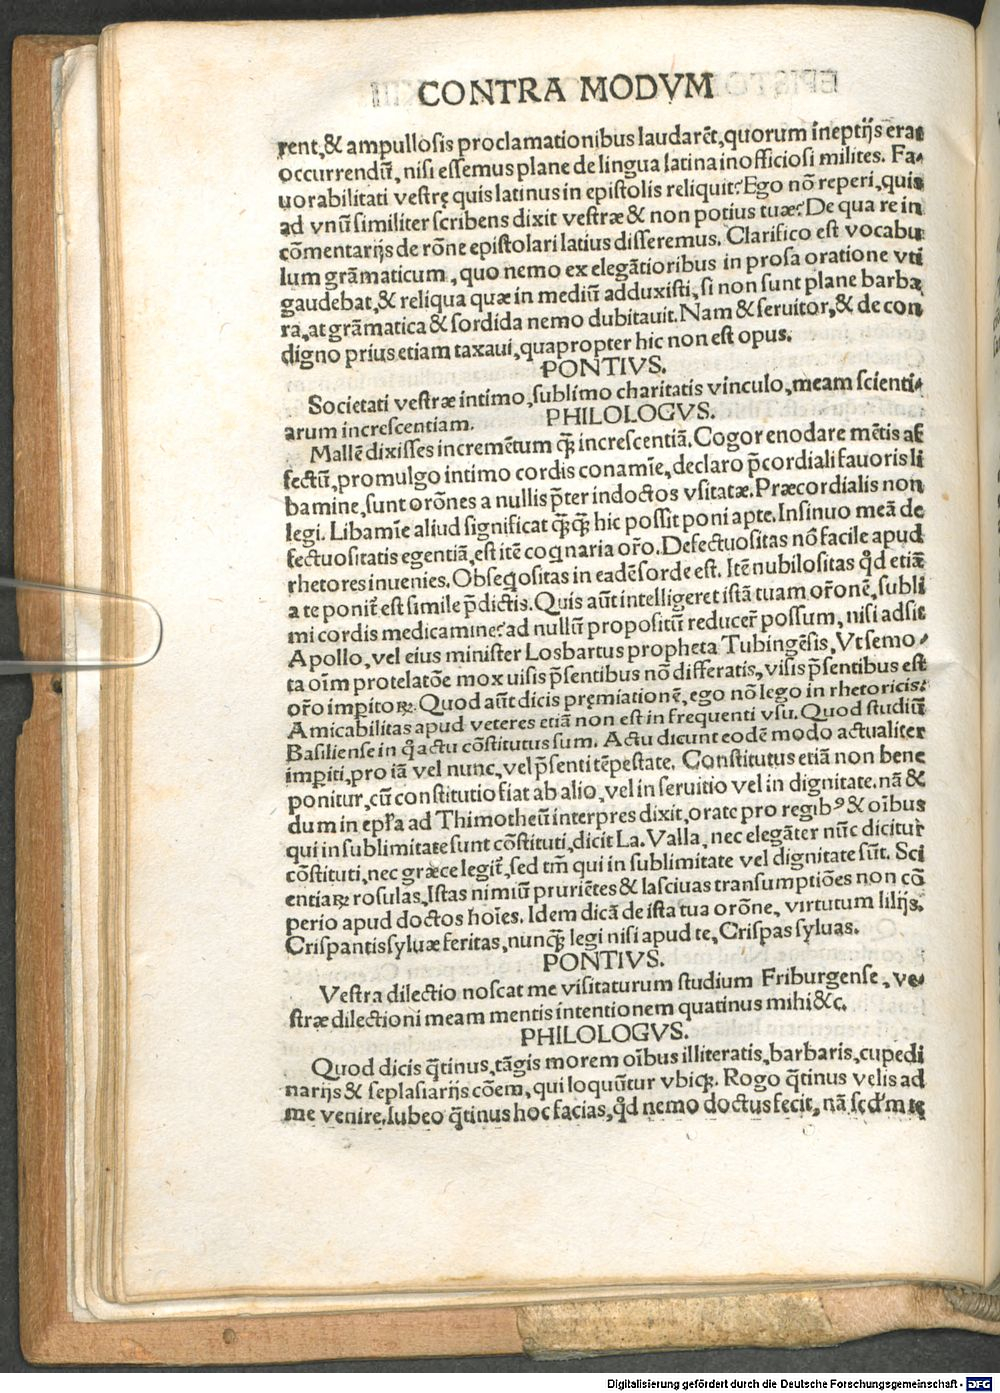 CONTRA MODVM
rent,& ampullosis proclamationibus laudarēt,quorum ineptijs erat
occurrendū, nisi essemus plane de lingua latina inofficiosi milites. Fa-
uorabilitati vestrę quis latinus in epistolis reliquit? Ego nō reperi,quis
ad vnū similiter scribens dixit vestræ & non potius tuæ? De qua re in
cōmentarijs de rōne epistolari latius disseremus. Clarifico est vocabu
lum grāmaticum, quo nemo ex elegātioribus in prosa oratione vti
gaudebat,& reliqua quæ in mediū adduxisti, si non sunt plane barba
ra,at grāmatica & sordida nemo dubitauit. Nam & seruitor,& de con
digno prius etiam taxaui,quapropter hic non est opus.
PONTIVS.
Societati vestræ intimo,sublimo charitatis vinculo,meam scienti-
arum increscentiam. PHILOLOGVS.
Mallē dixisses incremētum q̄ꝫ increscentiā. Cogor enodare mētis af
fectū,promulgo intimo cordis conamīe,declaro p̄cordiali fauoris li
bamine,sunt orōnes a nullis p̄ter indoctos vsitatæ. Præcordialis non
legi. Libamīe aliud significat q̄ꝫq̄ꝫ hic possit poni apte. Insinuo meā de
fectuositatis egentiā,est itē coq̄naria or̄o. Defectuositas nō facile apud
rhetores inuenies. Obseq̄ositas in eadē sorde est. Itē nubilositas q̊d etiā
a te ponit̄ est simile p̄dictis. Quis aūt intelligeret istā tuam or̄onē, subli
mi cordis medicamine? ad nullū propositū reducer̄ possum, nisi adsit
Apollo,vel eius minister Losbartus propheta Tubingēsis. Vt semo-
ta oīm protelatōe mox uisis p̄sentibus nō differatis,visis p̄sentibus est
or̄o impitoꝝ. Quod aūt dicis pręmiationē, ego nō lego in rhetoricis.
Amicabilitas apud veteres etiā non est in frequenti vsu. Quod studiū
Basiliense in q̊ actu cōstitutus sum. Actu dicunt eodē modo actualiter
impiti,pro iā vel nunc,vel p̄senti tēpestate. Constitutus etiā non bene
ponitur,cū constitutio fiat ab alio,vel in seruitio vel in dignitate.nā &
dum in epl̄a ad Thimotheū interpres dixit,orate pro regibꝰ & oībus
qui in sublimitate sunt cōstituti,dicit La. Valla, nec elegāter nūc dicitur
cōstituti,nec græce legit̄,sed tm̄ qui in sublimitate vel dignitate sūt. Sci
entiaꝝ rosulas. Istas nimiū pruriētes & lasciuas transumptiōes non cō
perio apud doctos hoīes. Idem dicā de ista tua orōne, virtutum lilijs.
Crispantis syluæ feritas,nunq̄ꝫ legi nisi apud te,Crispas syluas.
PONTIVS.
Vestra dilectio noscat me visitaturum studium Friburgense, ve-
stræ dilectioni meam mentis intentionem quatinus mihi &c.
PHILOLOGVS.
Quod dicis q̄tinus,tāgis morem oībus illiteratis,barbaris,cupedi
narijs & seplasiarijs cōem,qui loquūtur vbiqꝫ. Rogo q̄tinus velis ad
me venire.Iubeo q̄tinus hoc facias,q̊d nemo doctus fecit, nā
Digitalisierung gefördert durch die Deutsche Forschungsgemeinschaft - DFG